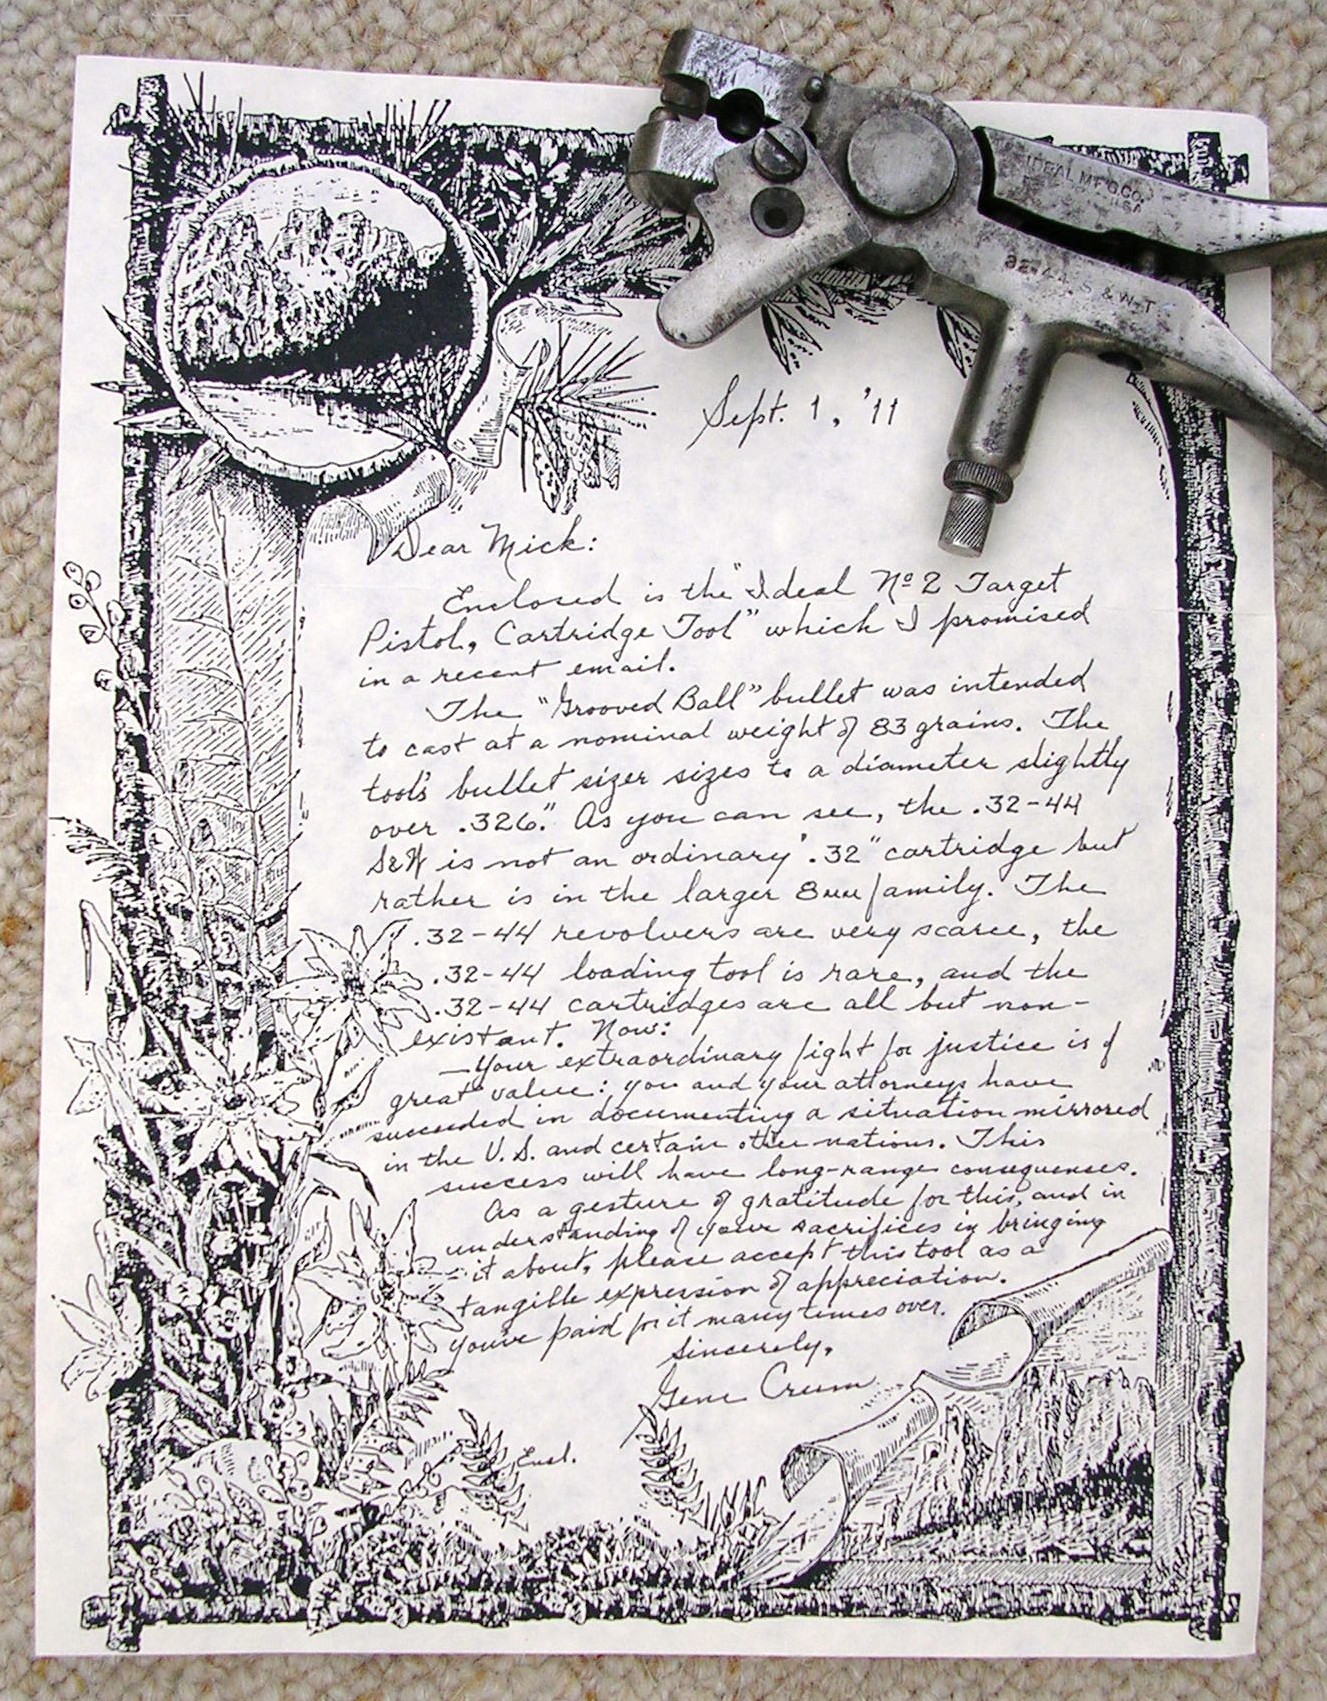 IDEAL MF'G.CO.
U.S.A.
32-44. S & W-T
Sept. 1, '11
Dear Mick:
Enclosed is the "Ideal No 2 Target
Pistol, Cartridge Tool" which I promised
in a recent email.
The "Grooved Ball" bullet was intended
to cast at a nominal weight of 83 grains. The
tool's bullet sizer sizes to a diameter slightly
over .326." As you can see, the .32-44
S&W is not an ordinary '.32" cartridge but
rather is in the larger 8mm family. The
.32-44 revolvers are very scarce, the
.32-44 loading tool is rare, and the
.32-44 cartridges are all but non-
existant. Now:
—Your extraordinary fight for justice is of
great value: you and your attorneys have
succeeded in documenting a situation mirrored
in the U.S. and certain other nations. This
success will have long-range consequenses.
As a gesture of gratitude for this, and in
understanding of your sacrifices in bringing
it about, please accept this tool as a
tangible expression of appreciation.
You've paid for it many times over.
Sincerely,
Gene Crum
Encl.